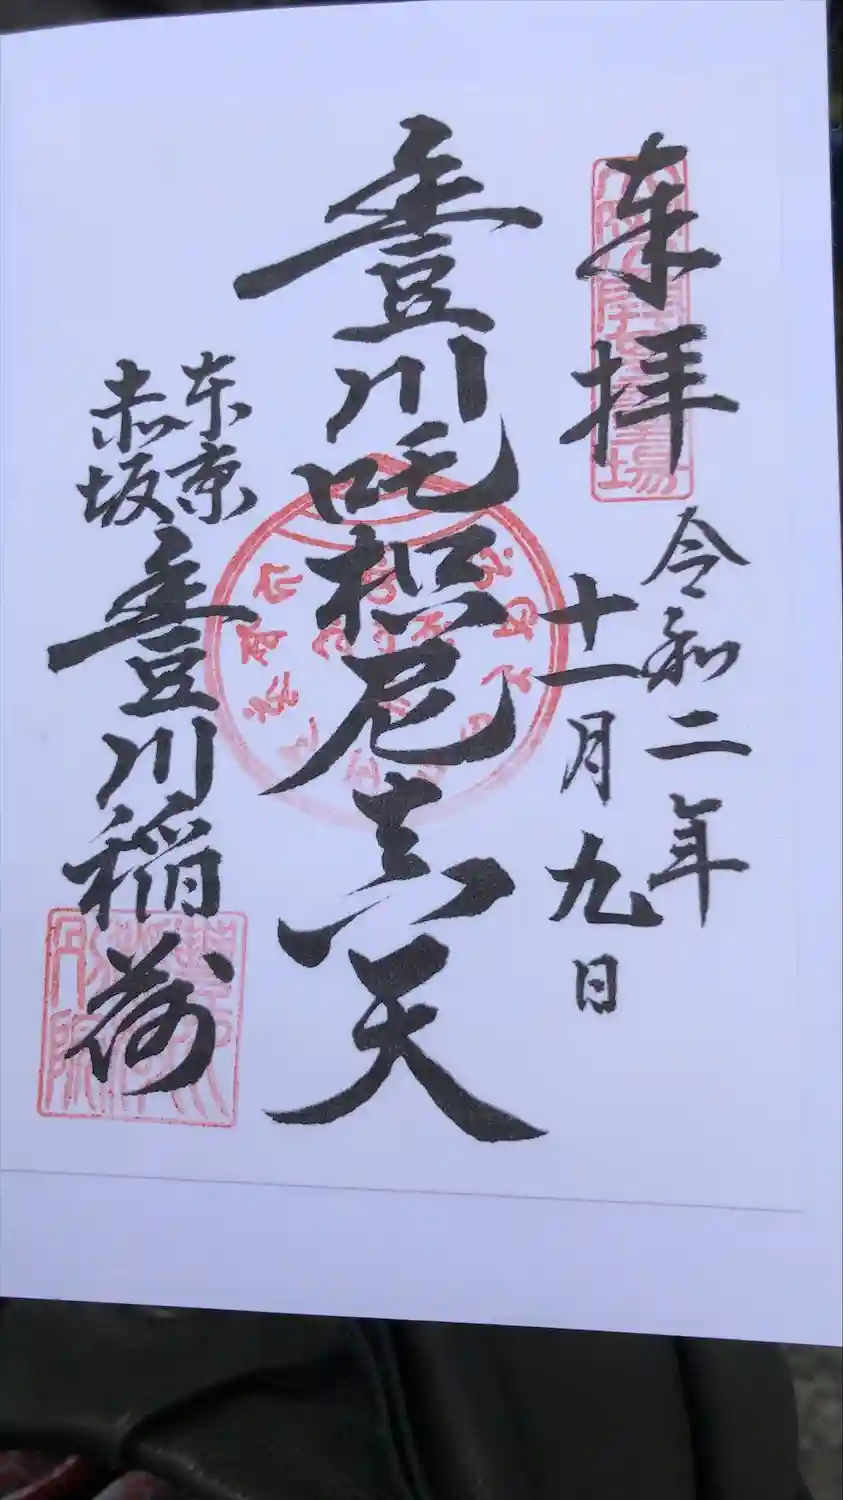 来拝
令和二年
十一月九日
豊川吒枳尼真天
東京
赤坂
豊川稲荷